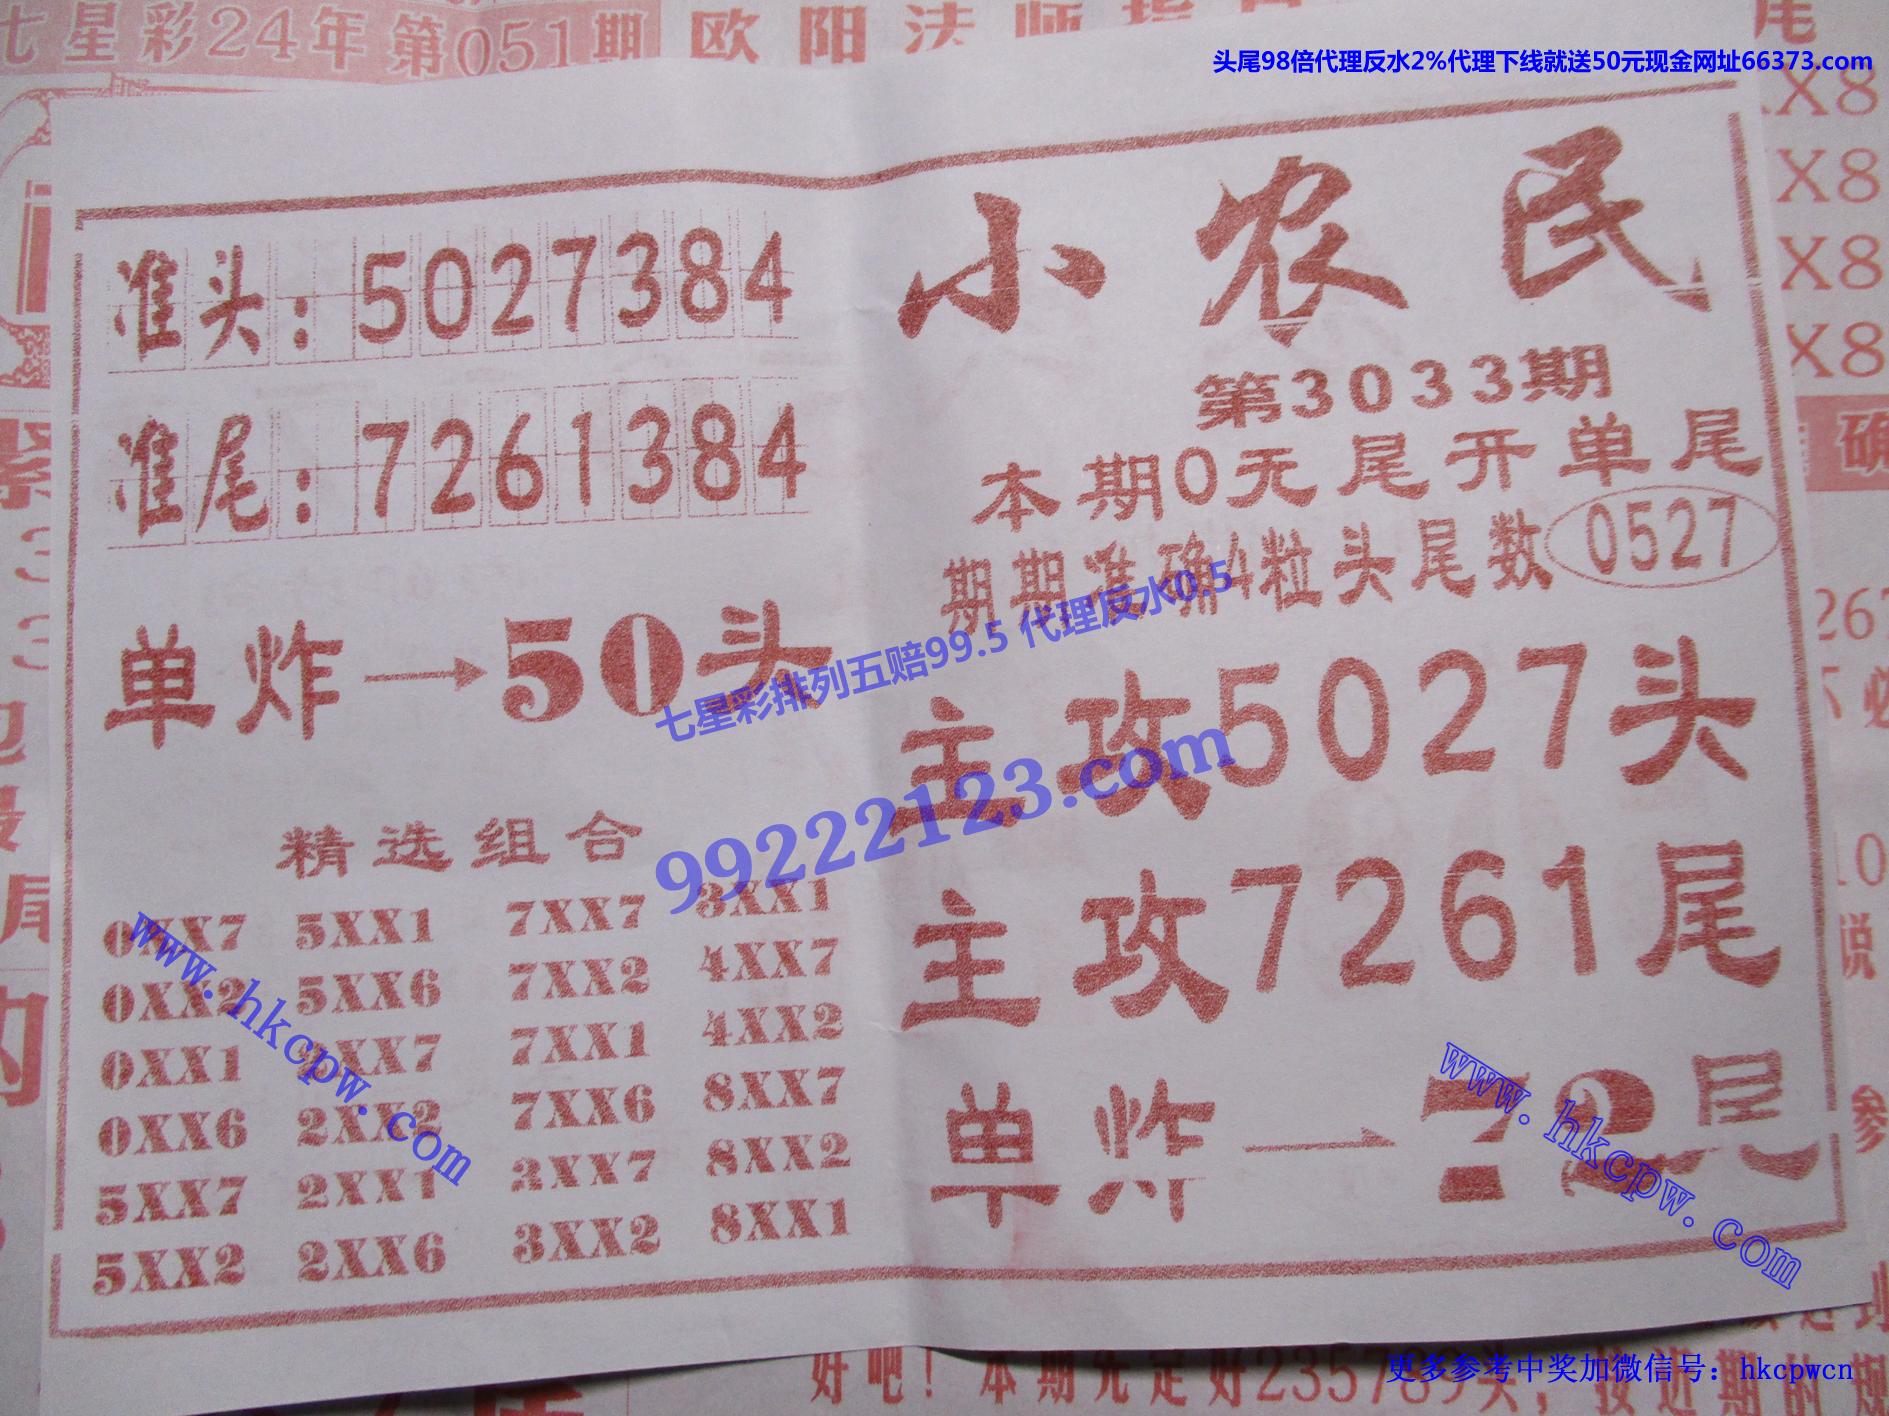 七星彩24年第051期
欧阳法师指
尾
头尾98倍代理反水2%代理下线就送50元现金网址66373.com
X8
X8
X8
X8
确
小农民
第3033期
本期0元尾开单尾
期期准确4粒头尾数 0527
主攻5027头
主攻7261尾
单炸→72尾
准头：5027384
准尾：7261384
单炸→50头
七星彩排列五赔99.5 代理反水0.5
99222123.com
精选组合
0XX7 5XX1 7XX7 3XX1
0XX2 5XX6 7XX2 4XX7
0XX1 2XX7 7XX1 4XX2
0XX6 2XX2 7XX6 8XX7
5XX7 2XX1 3XX7 8XX2
5XX2 2XX6 3XX2 8XX1
www.hkcpw.com
www.hkcpw.com
好吧！本期先定好235789头，按近期的规
更多参考中奖加微信号：hkcpwcn